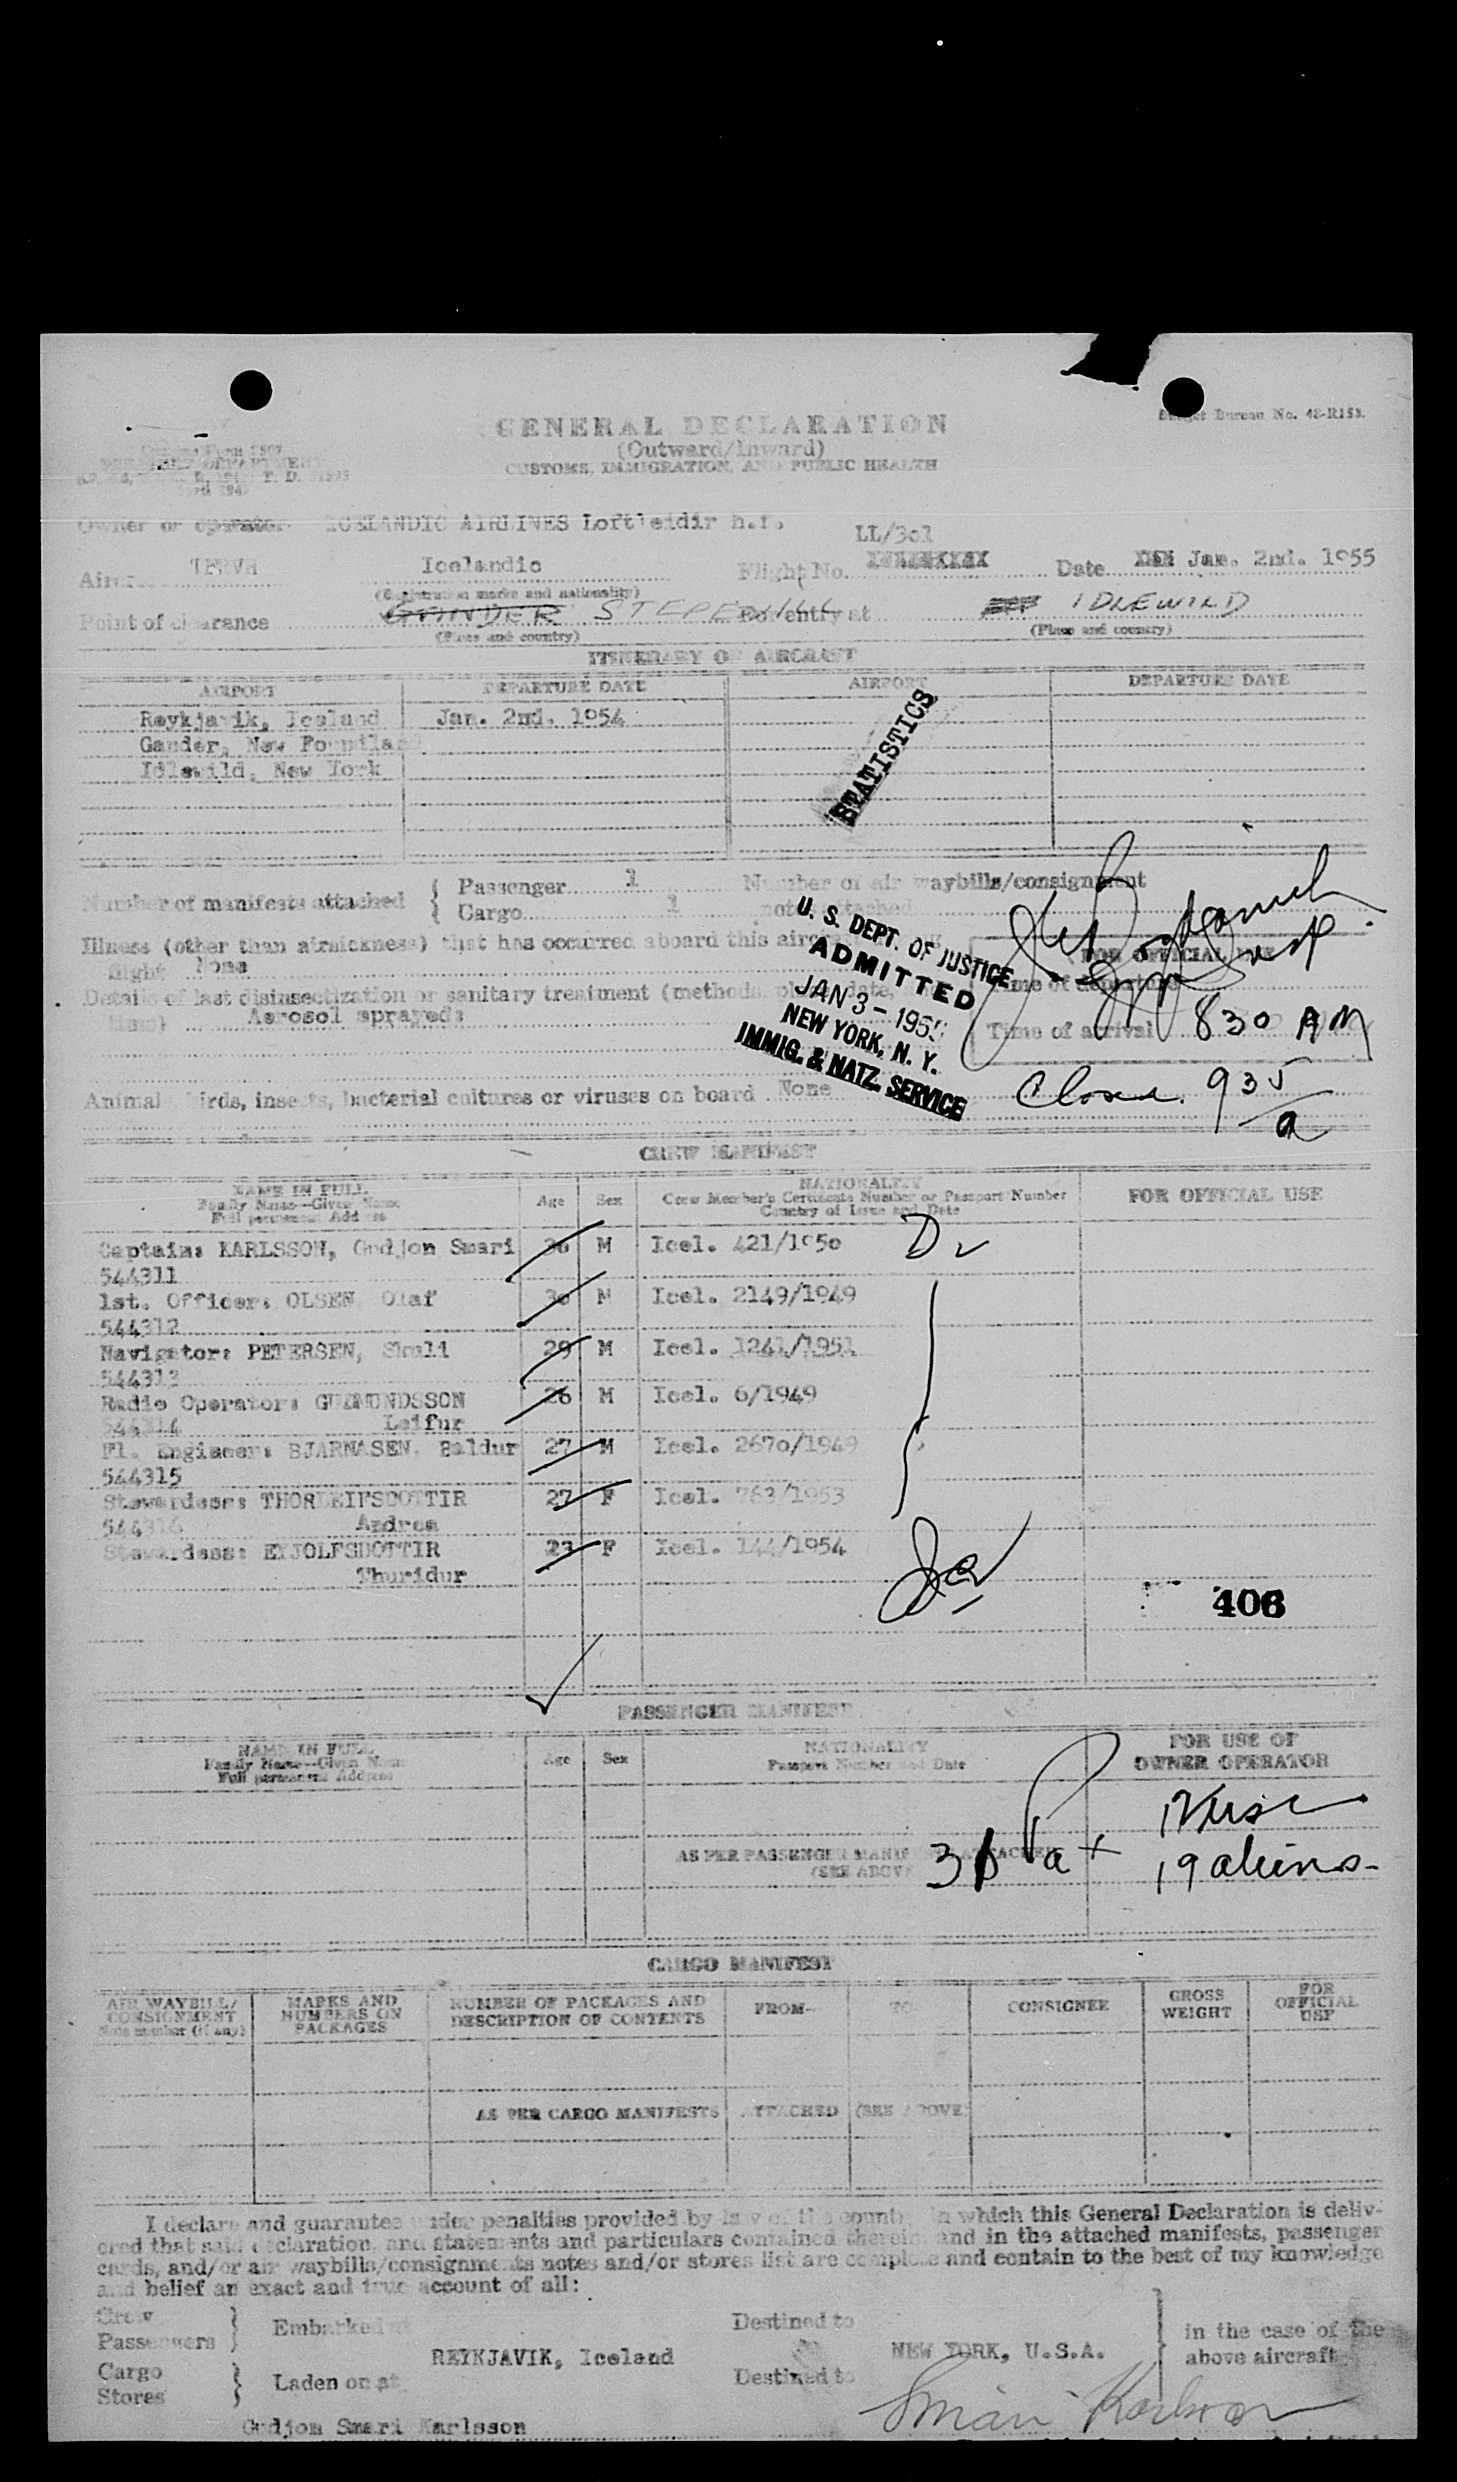 GENERAL DECLARATION
(Outward/Inward)
CUSTOMS, IMMIGRATION, AND PUBLIC HEALTH
Bureau No. 48-R153.
Owner or operator ICELANDIC AIRLINES Loftleidir h.f.
LL/3o1
TFRVH Icelandic Flight No. Date Jan. 2nd. 1955
(Registration marks and nationality)
Point of clearance GANDER entry at IDLEWILD
(Place and country) (Place and country)
ITINERARY OF AIRCRAFT
AIRPORT DEPARTURE DATE AIRPORT DEPARTURE DATE
Reykjavik, Iceland Jan. 2nd. 1954
Gander, New
Idlewild, New York
STATISTICS
Number of manifests attached { Passenger 1 Number of air waybills/consignment
Cargo 1
Illness (other than airsickness) that has occurred aboard this
flight None
FOR OFFICIAL USE
Details of last disinsectization or sanitary treatment (method, place, date,
time) Aerosol sprayed:
Time of departure
Time of arrival 830 AM
U. S. DEPT. OF JUSTICE
ADMITTED
JAN 3 - 1955
NEW YORK, N. Y.
IMMIG. & NATZ. SERVICE
Close 935
a
Animals, birds, insects, bacterial cultures or viruses on board None
CREW MANIFEST
NAME IN FULL Age Sex NATIONALITY FOR OFFICIAL USE
Family Name—Given Name Crew Member's Certificate Number or Passport Number
Full permanent Address Country of Issue and Date
Captain: KARLSSON, Gudjon Smari 36 M Icel. 421/195o
544311
1st. Officer: OLSEN, Olaf 3o M Icel. 2149/1949
544312
Navigator: PETERSEN, Skuli 29 M Icel. 1241/1951
544313
Radio Operator: GUDMUNDSSON 26 M Icel. 6/1949
544314 Leifur
Fl. Engineer: BJARNASEN, Baldur 27 M Icel. 267o/1949
544315
Stewardess: THORLEIFSDOTTIR 27 F Icel. 763/1953
544316 Andrea
Stewardess: EYJOLFSDOTTIR 23 F Icel. 144/1954
Thuridur
406
PASSENGER MANIFEST
NAME IN FULL Age Sex NATIONALITY FOR USE OF
Family Name—Given Name Passport Number and Date OWNER OPERATOR
Full permanent Address
AS PER PASSENGER MANIFEST ATTACHED
(SEE ABOVE)
19 aliens
CARGO MANIFEST
AIR WAYBILL/ MARKS AND NUMBER OF PACKAGES AND FROM— TO CONSIGNEE GROSS FOR
CONSIGNMENT NUMBERS ON DESCRIPTION OF CONTENTS WEIGHT OFFICIAL
Note number (if any) PACKAGES USE
AS PER CARGO MANIFESTS ATTACHED (SEE ABOVE)
I declare and guarantee under penalties provided by law of the country in which this General Declaration is deliv-
ered that said declaration, and statements and particulars contained therein, and in the attached manifests, passenger
cards, and/or air waybills/consignments notes and/or stores list are complete and contain to the best of my knowledge
and belief an exact and true account of all:
Crew
Passengers } Embarked at Destined to in the case of the
REYKJAVIK, Iceland NEW YORK, U.S.A. above aircraft
Cargo
Stores } Laden on at Destined to
Gudjon Smari Karlsson
Smári Karlsson